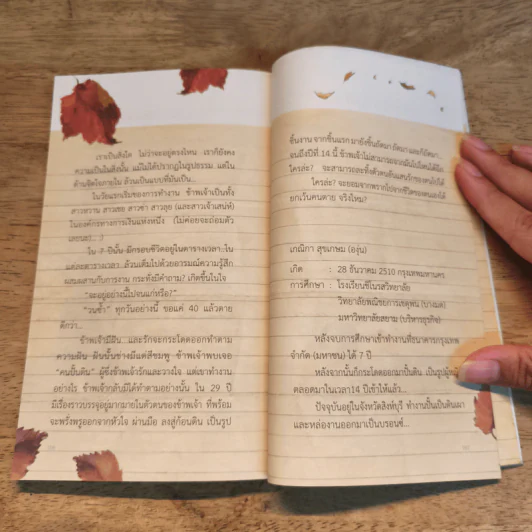 เราเป็นสิ่งใด ไม่ว่าจะอยู่ตรงไหน เราก็ยังคง
ความเป็นในสิ่งนั้น แม้ไม่ได้ปรากฏในรูปธรรม แต่ใน
ด้านจิตใจภายใน ล้วนเป็นแบบที่มันเป็น...
ในวัยแรกเริ่มของการทำงาน ข้าพเจ้าเป็นทั้ง
สาวสวาน สาวเชย สาวซ่า สาวลุย (และสาวเจ้าเสน่ห์)
ในองค์กรทางการเงินแห่งหนึ่ง (ไม่ค่อยจะถ่อมตัว
เลยนะ!...)
ใน 7 ปีนั้น มีกรอบชีวิตอยู่ในตารางเวลา ใน
แต่ละตารางเวลา ล้วนเต็มไปด้วยอารมณ์ความรู้สึก
ผสมผสานกับการงาน กระทั่งมีคำถาม? เกิดขึ้นในใจ
"จะอยู่อย่างนี้ไปจนแก่หรือ?"
"วนซ้ำ" ทุกวันอย่างนี้ ขอแค่ 40 แล้วตาย
ดีกว่า...
ข้าพเจ้ามีฝัน และรักจะกระโดดออกทำตาม
ความฝัน ฝันนั้นช่างมีแต่สีชมพู ข้าพเจ้าพบเจอ
"คนปั้นดิน" ผู้ซึ่งข้าพเจ้ารักและวางใจ แต่เขาทำงาน
อย่างไร ข้าพเจ้ากลับมิได้ทำตามอย่างนั้น ใน 29 ปี
มีเรื่องราวบรรจุอยู่มากมายในตัวตนของข้าพเจ้า ที่พร้อม
จะพรั่งพรูออกจากหัวใจ ผ่านมือ ลงสู่ก้อนดิน เป็นรูป
ชิ้นงาน จากชิ้นแรก มายังชิ้นถัดมา ถัดมา และก็ถัดมา...
จนถึงปีที่ 14 นี้ ข้าพเจ้าไม่สามารถจากมันไปไหนได้อีก
ใครล่ะ? จะสามารถละทิ้งตัวตนอันแสนรักของตนไปได้
ใครล่ะ? จะยอมจากพรากไปจากชีวิตของตนเองได้
ยกเว้นคนตาย จริงไหม?
เกณิกา สุขเกษม (องุ่น)
เกิด : 28 ธันวาคม 2510 กรุงเทพมหานคร
การศึกษา : โรงเรียนซีโนรสวิทยาลัย
วิทยาลัยพณิชยการเชตุพน (บางมด)
มหาวิทยาลัยสยาม (บริหารธุรกิจ)
หลังจบการศึกษาเข้าทำงานที่ธนาคารกรุงเทพ
จำกัด (มหาชน) ได้ 7 ปี
หลังจากนั้นก็กระโดดออกมาปั้นดิน เป็นรูปผู้หญิง
ตลอดมาในเวลา14 ปีเข้าให้แล้ว...
ปัจจุบันอยู่ในจังหวัดสิงห์บุรี ทำงานปั้นเป็นดินเผา
และหล่องานออกมาเป็นบรอนซ์...